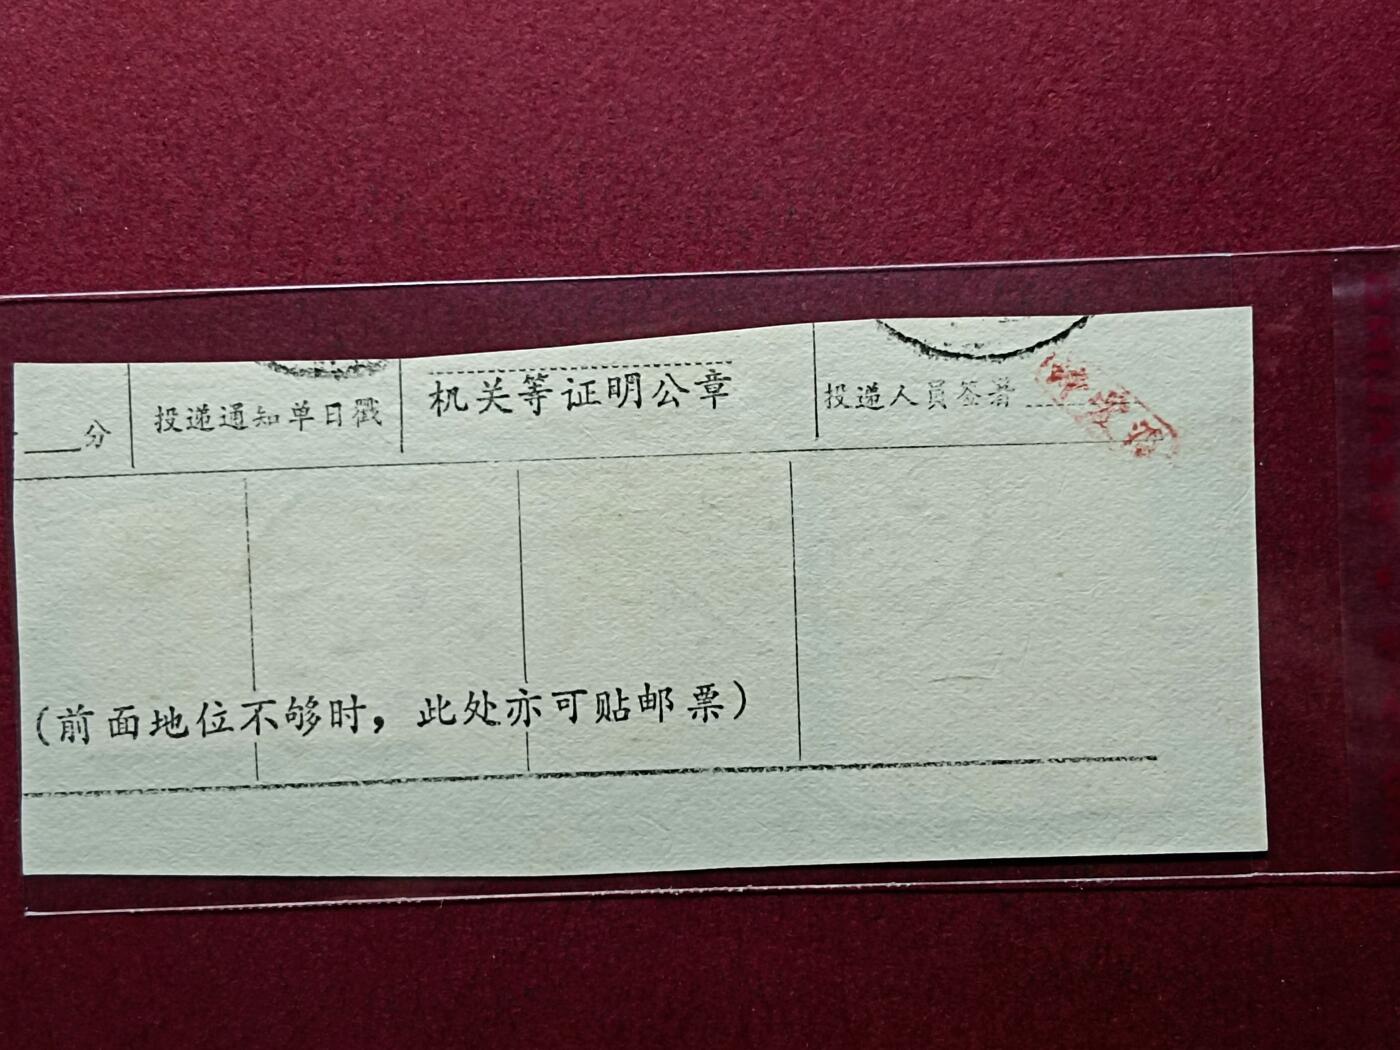 分
投递通知单日戳
机关等证明公章
投递人员签署
(前面地位不够时，此处亦可贴邮票)